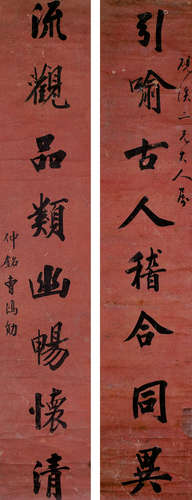 引喻古人稽合同異
流觀品類幽暢懷清
仲銘曹鴻勛